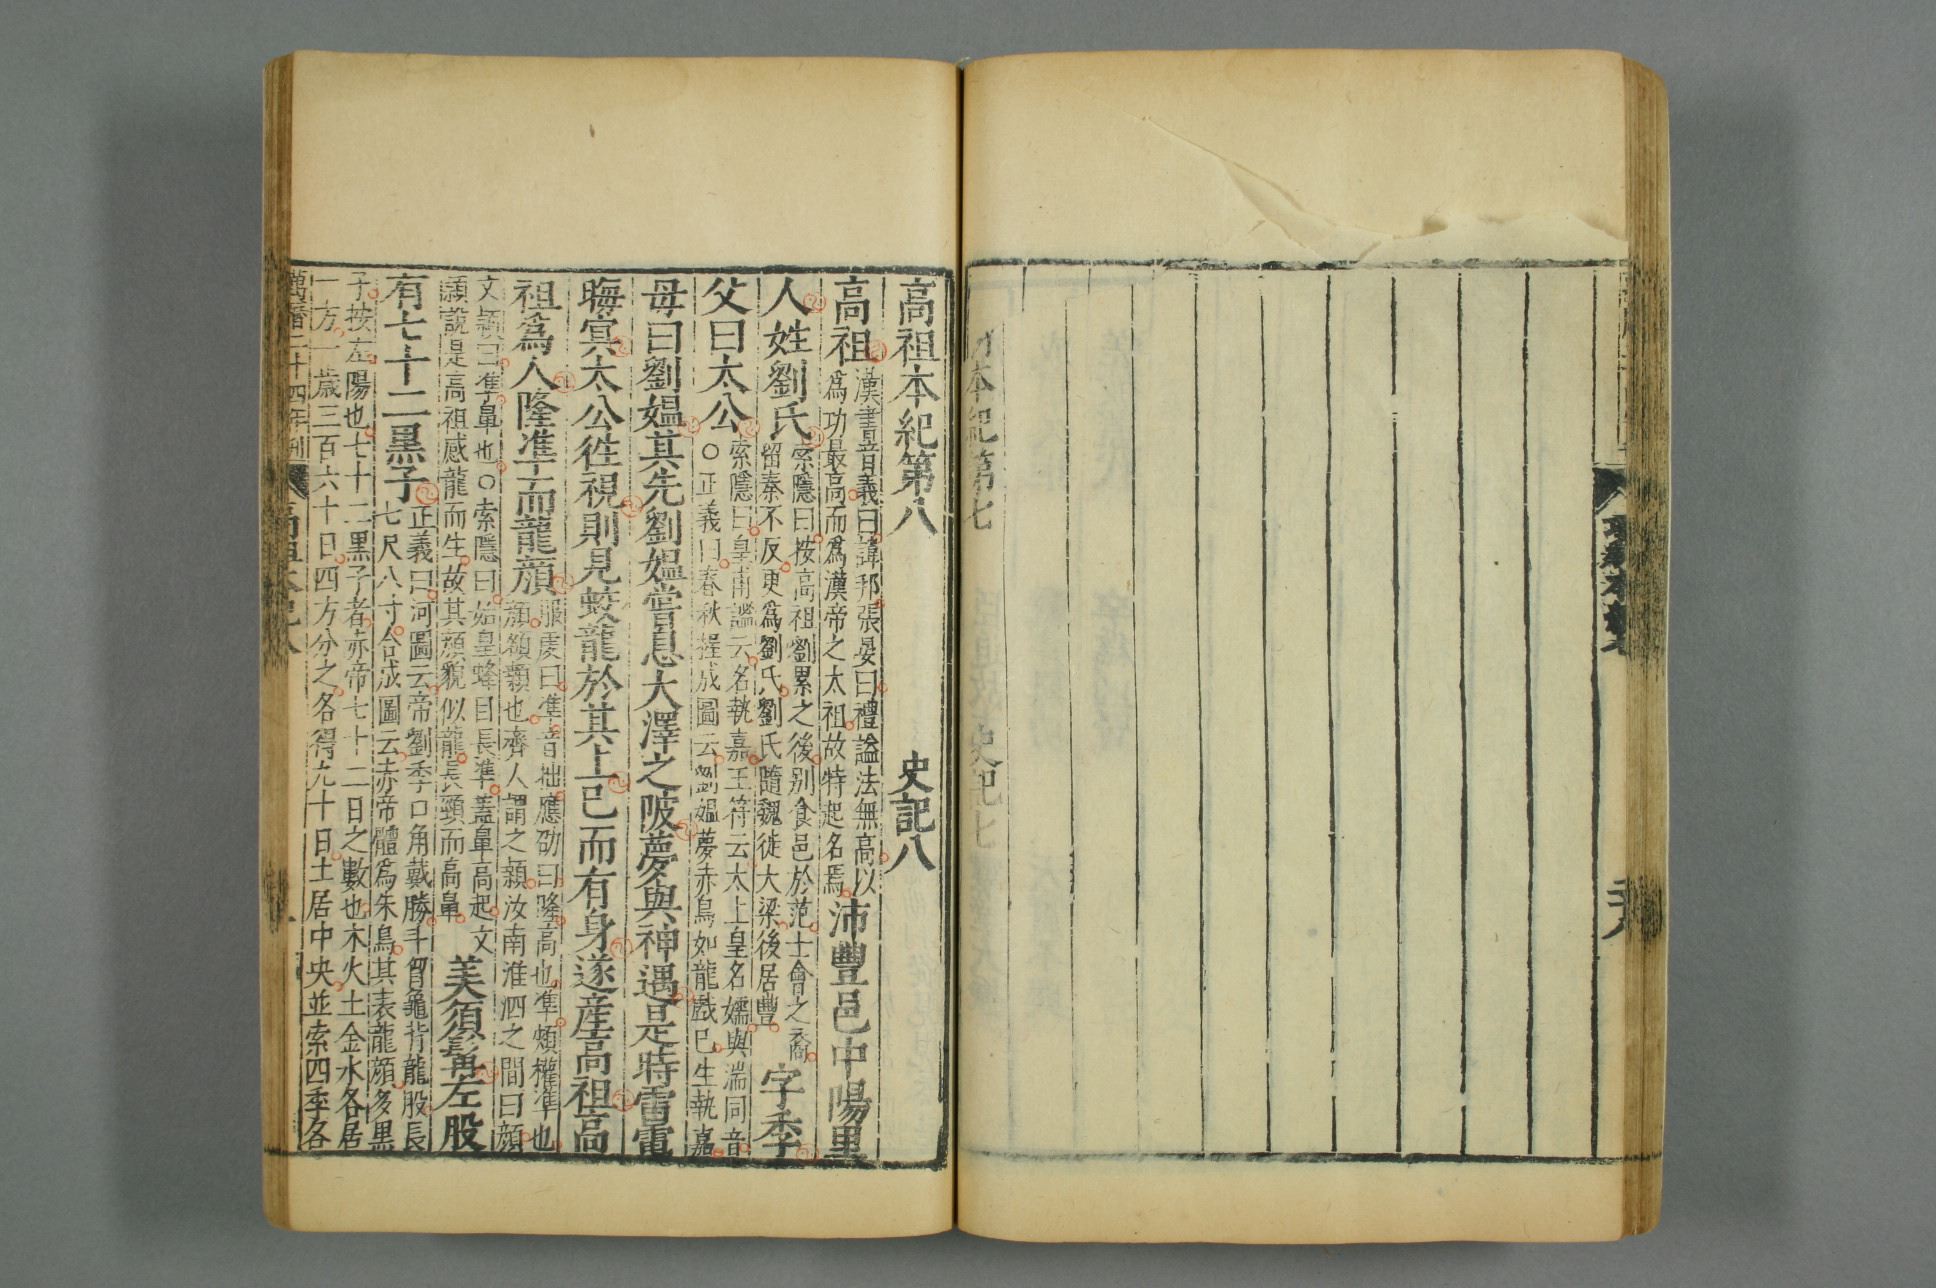 本紀第七
史記七
高祖本紀第八 史記八
高祖
漢書音義曰諱邦張晏曰禮諡法無高以
爲功最高而爲漢帝之太祖故特起名焉
沛豐邑中陽里
人姓劉氏
索隱曰按高祖劉累之後別食邑於范士會之裔
留秦不反更爲劉氏劉氏隨魏徙大梁後居豐
字季
父曰太公
索隱曰皇甫謐云名執嘉王符云太上皇名㷄與湍同音
○正義曰春秋握成圖云劉媼夢赤鳥如龍戲已生執嘉
母曰劉媼其先劉媼嘗息大澤之陂夢與神遇是時雷電
晦冥太公往視則見蛟龍於其上已而有身遂産高祖高
祖爲人隆準而龍顏
服虔曰準音拙應劭曰隆高也準頰權準也
顏頟顙也齊人謂之顙汝南淮泗之間曰顏
文穎曰準鼻也○索隱曰始皇蜂目長準蓋鼻高起文
穎說是高祖感龍而生故其顏貌似龍長頸而高鼻
美須髯左股
有七十二黑子
正義曰河圖云帝劉季口角戴勝斗胷龜背龍股長
七尺八寸合成圖云赤帝體爲朱鳥其表龍顏多黑
子按左陽也七十二黑子者赤帝七十二日之數也木火土金水各居
一方一歲三百六十日四方分之各得九十日土居中央並索四季各
萬曆二十四年刊
高祖本紀八
一